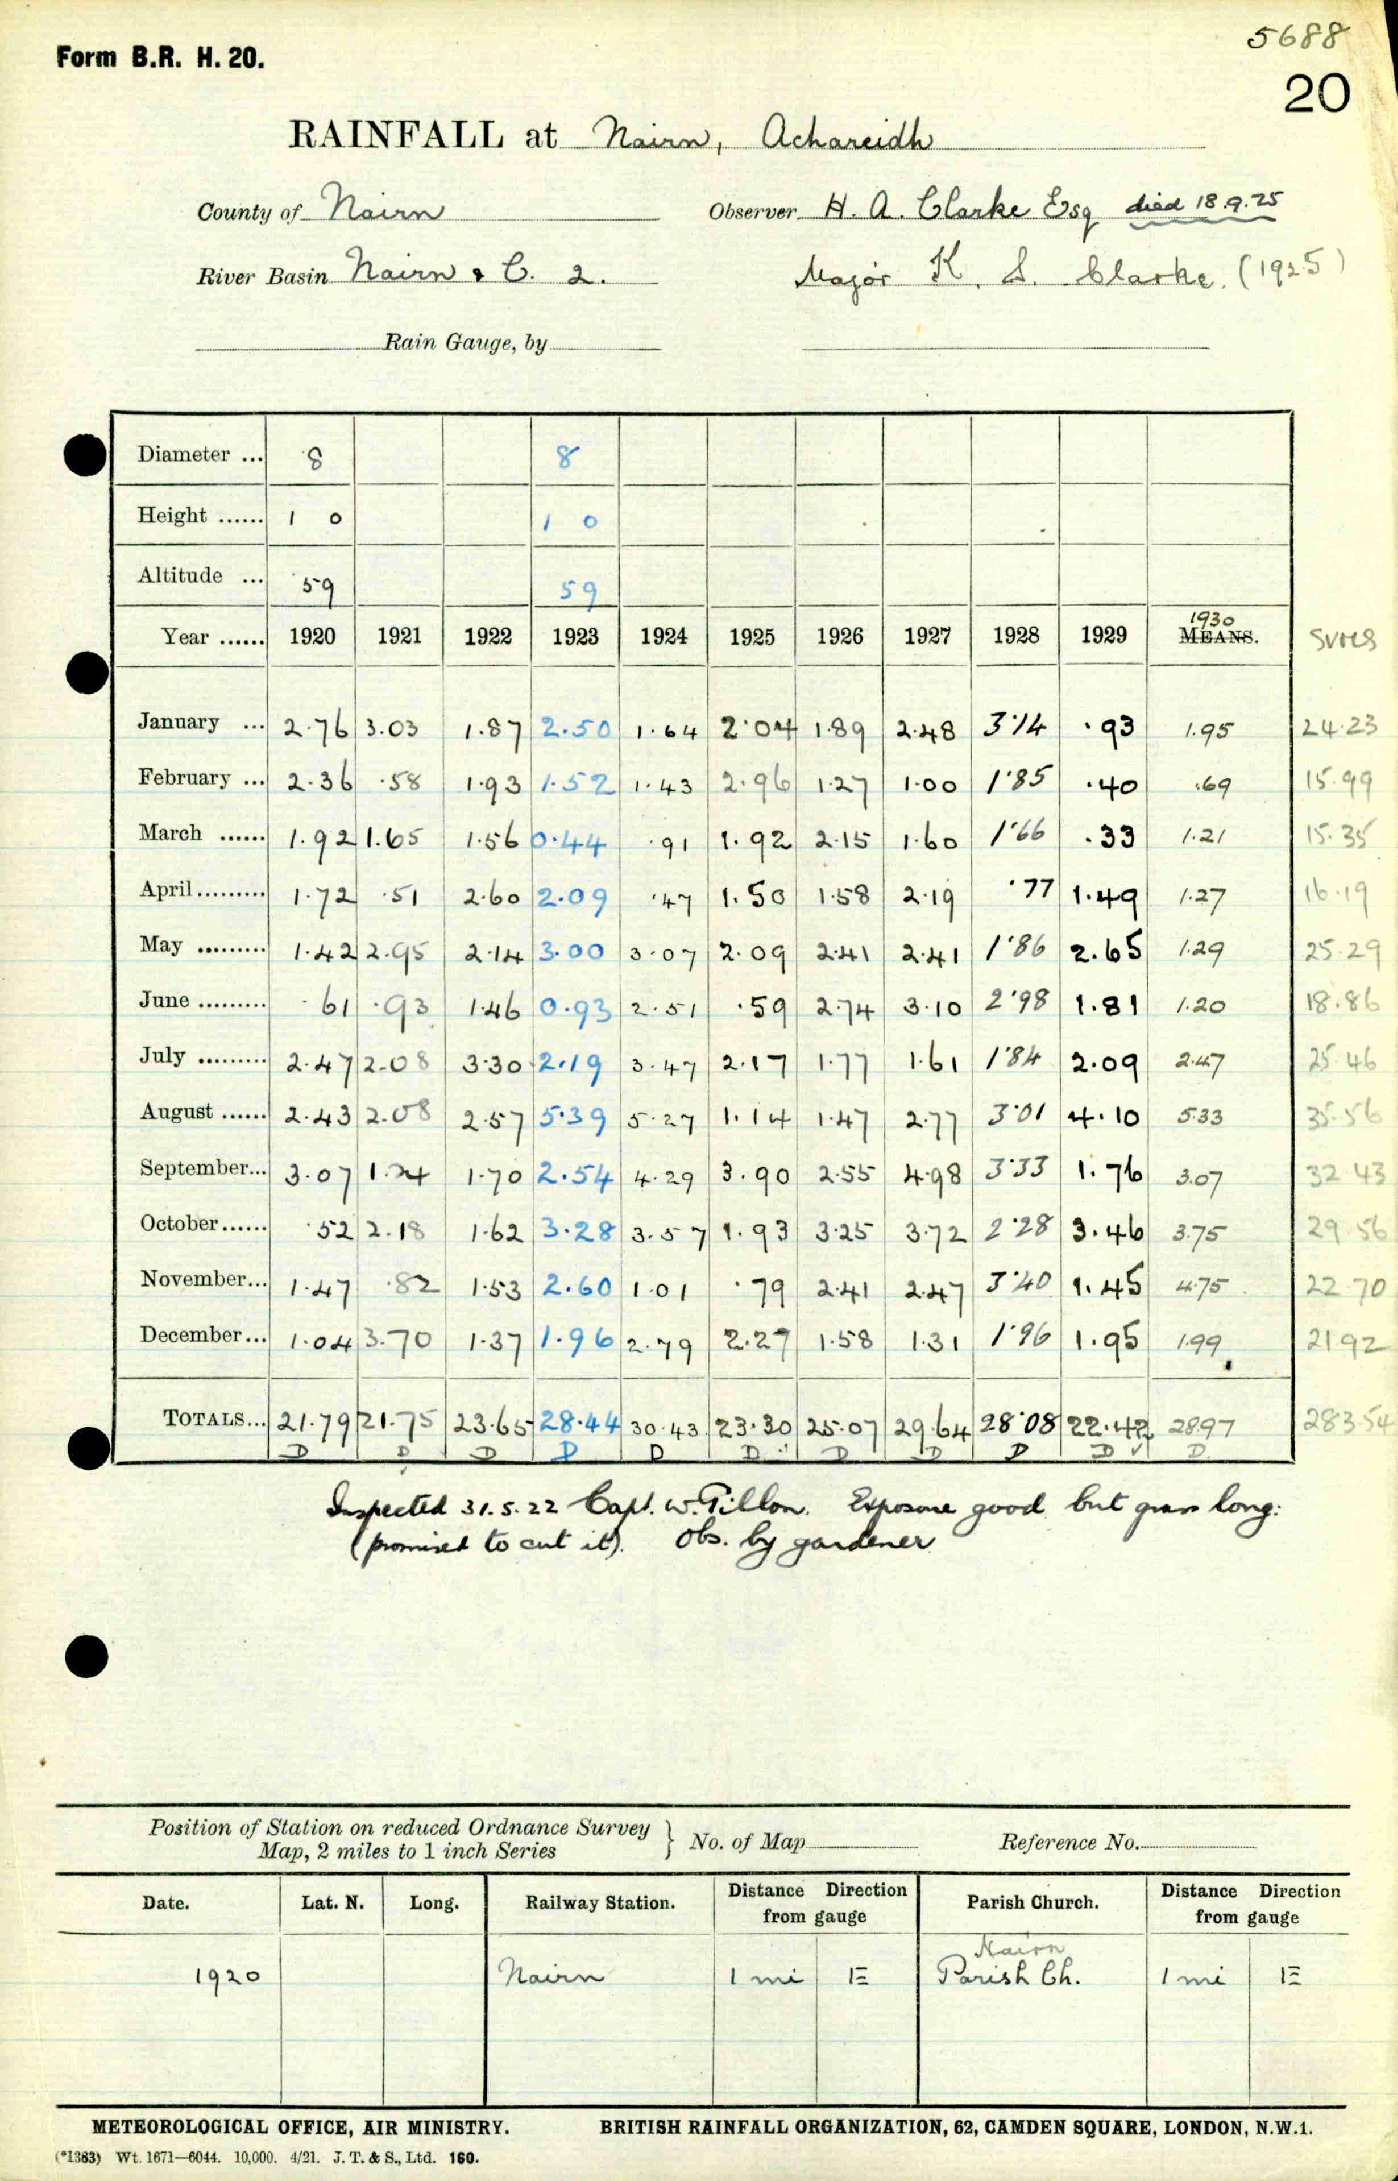 5688
Form B.R. H. 20.
20
RAINFALL at Nairn, Achareidh
County of Nairn Observer H. A. Clarke Esq died 18.9.25
River Basin Nairn & C. 2. Major K. S. Clarke. (1925)
Rain Gauge, by
Diameter ... 8 8
Height ...... 1 0 1 0
Altitude ... 59 59
1930
Year ...... 1920 1921 1922 1923 1924 1925 1926 1927 1928 1929 MEANS.
January ... 2.76 3.03 1.87 2.50 1.64 2.04 1.89 2.48 3.14 .93 1.95 24.23
February ... 2.36 .58 1.93 1.52 1.43 2.96 1.27 1.00 1.85 .40 .69 15.99
March ...... 1.92 1.65 1.56 0.44 .91 1.92 2.15 1.60 1.66 .33 1.21 15.35
April......... 1.72 .51 2.60 2.09 .47 1.50 1.58 2.19 .77 1.49 1.27 16.19
May ......... 1.42 2.95 2.14 3.00 3.07 2.09 2.41 2.41 1.86 2.65 1.29 25.29
June ......... .61 .93 1.46 0.93 2.51 .59 2.74 3.10 2.98 1.81 1.20 18.86
July ......... 2.47 2.08 3.30 2.19 3.47 2.17 1.77 1.61 1.84 2.09 2.47 25.46
August ...... 2.43 2.08 2.57 5.39 5.27 1.14 1.47 2.77 3.01 4.10 5.33 35.56
September... 3.07 1.24 1.70 2.54 4.29 3.90 2.55 4.98 3.33 1.76 3.07 32.43
October...... .52 2.18 1.62 3.28 3.57 1.93 3.25 3.72 2.28 3.46 3.75 29.56
November... 1.47 .82 1.53 2.60 1.01 .79 2.41 2.47 3.40 1.45 4.75 22.70
December... 1.04 3.70 1.37 1.96 2.79 2.27 1.58 1.31 1.96 1.95 1.99 21.92
TOTALS... 21.79 21.75 23.65 28.44 30.43 23.30 25.07 29.64 28.08 22.42 28.97 283.54
D D D D D D D D D D ✓ D
Inspected 31.5.22 Capt. W. Tillon. Exposure good but grass long.
(promised to cut it). Obs. by gardener
Position of Station on reduced Ordnance Survey
Map, 2 miles to 1 inch Series } No. of Map Reference No.
Date. Lat. N. Long. Railway Station. Distance Direction from gauge Parish Church. Distance Direction from gauge
Nairn
1920 Nairn 1 mi E Parish Ch. 1 mi E
METEOROLOGICAL OFFICE, AIR MINISTRY. BRITISH RAINFALL ORGANIZATION, 62, CAMDEN SQUARE, LONDON, N.W.1.
(*1383) Wt. 1671—6044. 10,000. 4/21. J. T. & S., Ltd. 160.